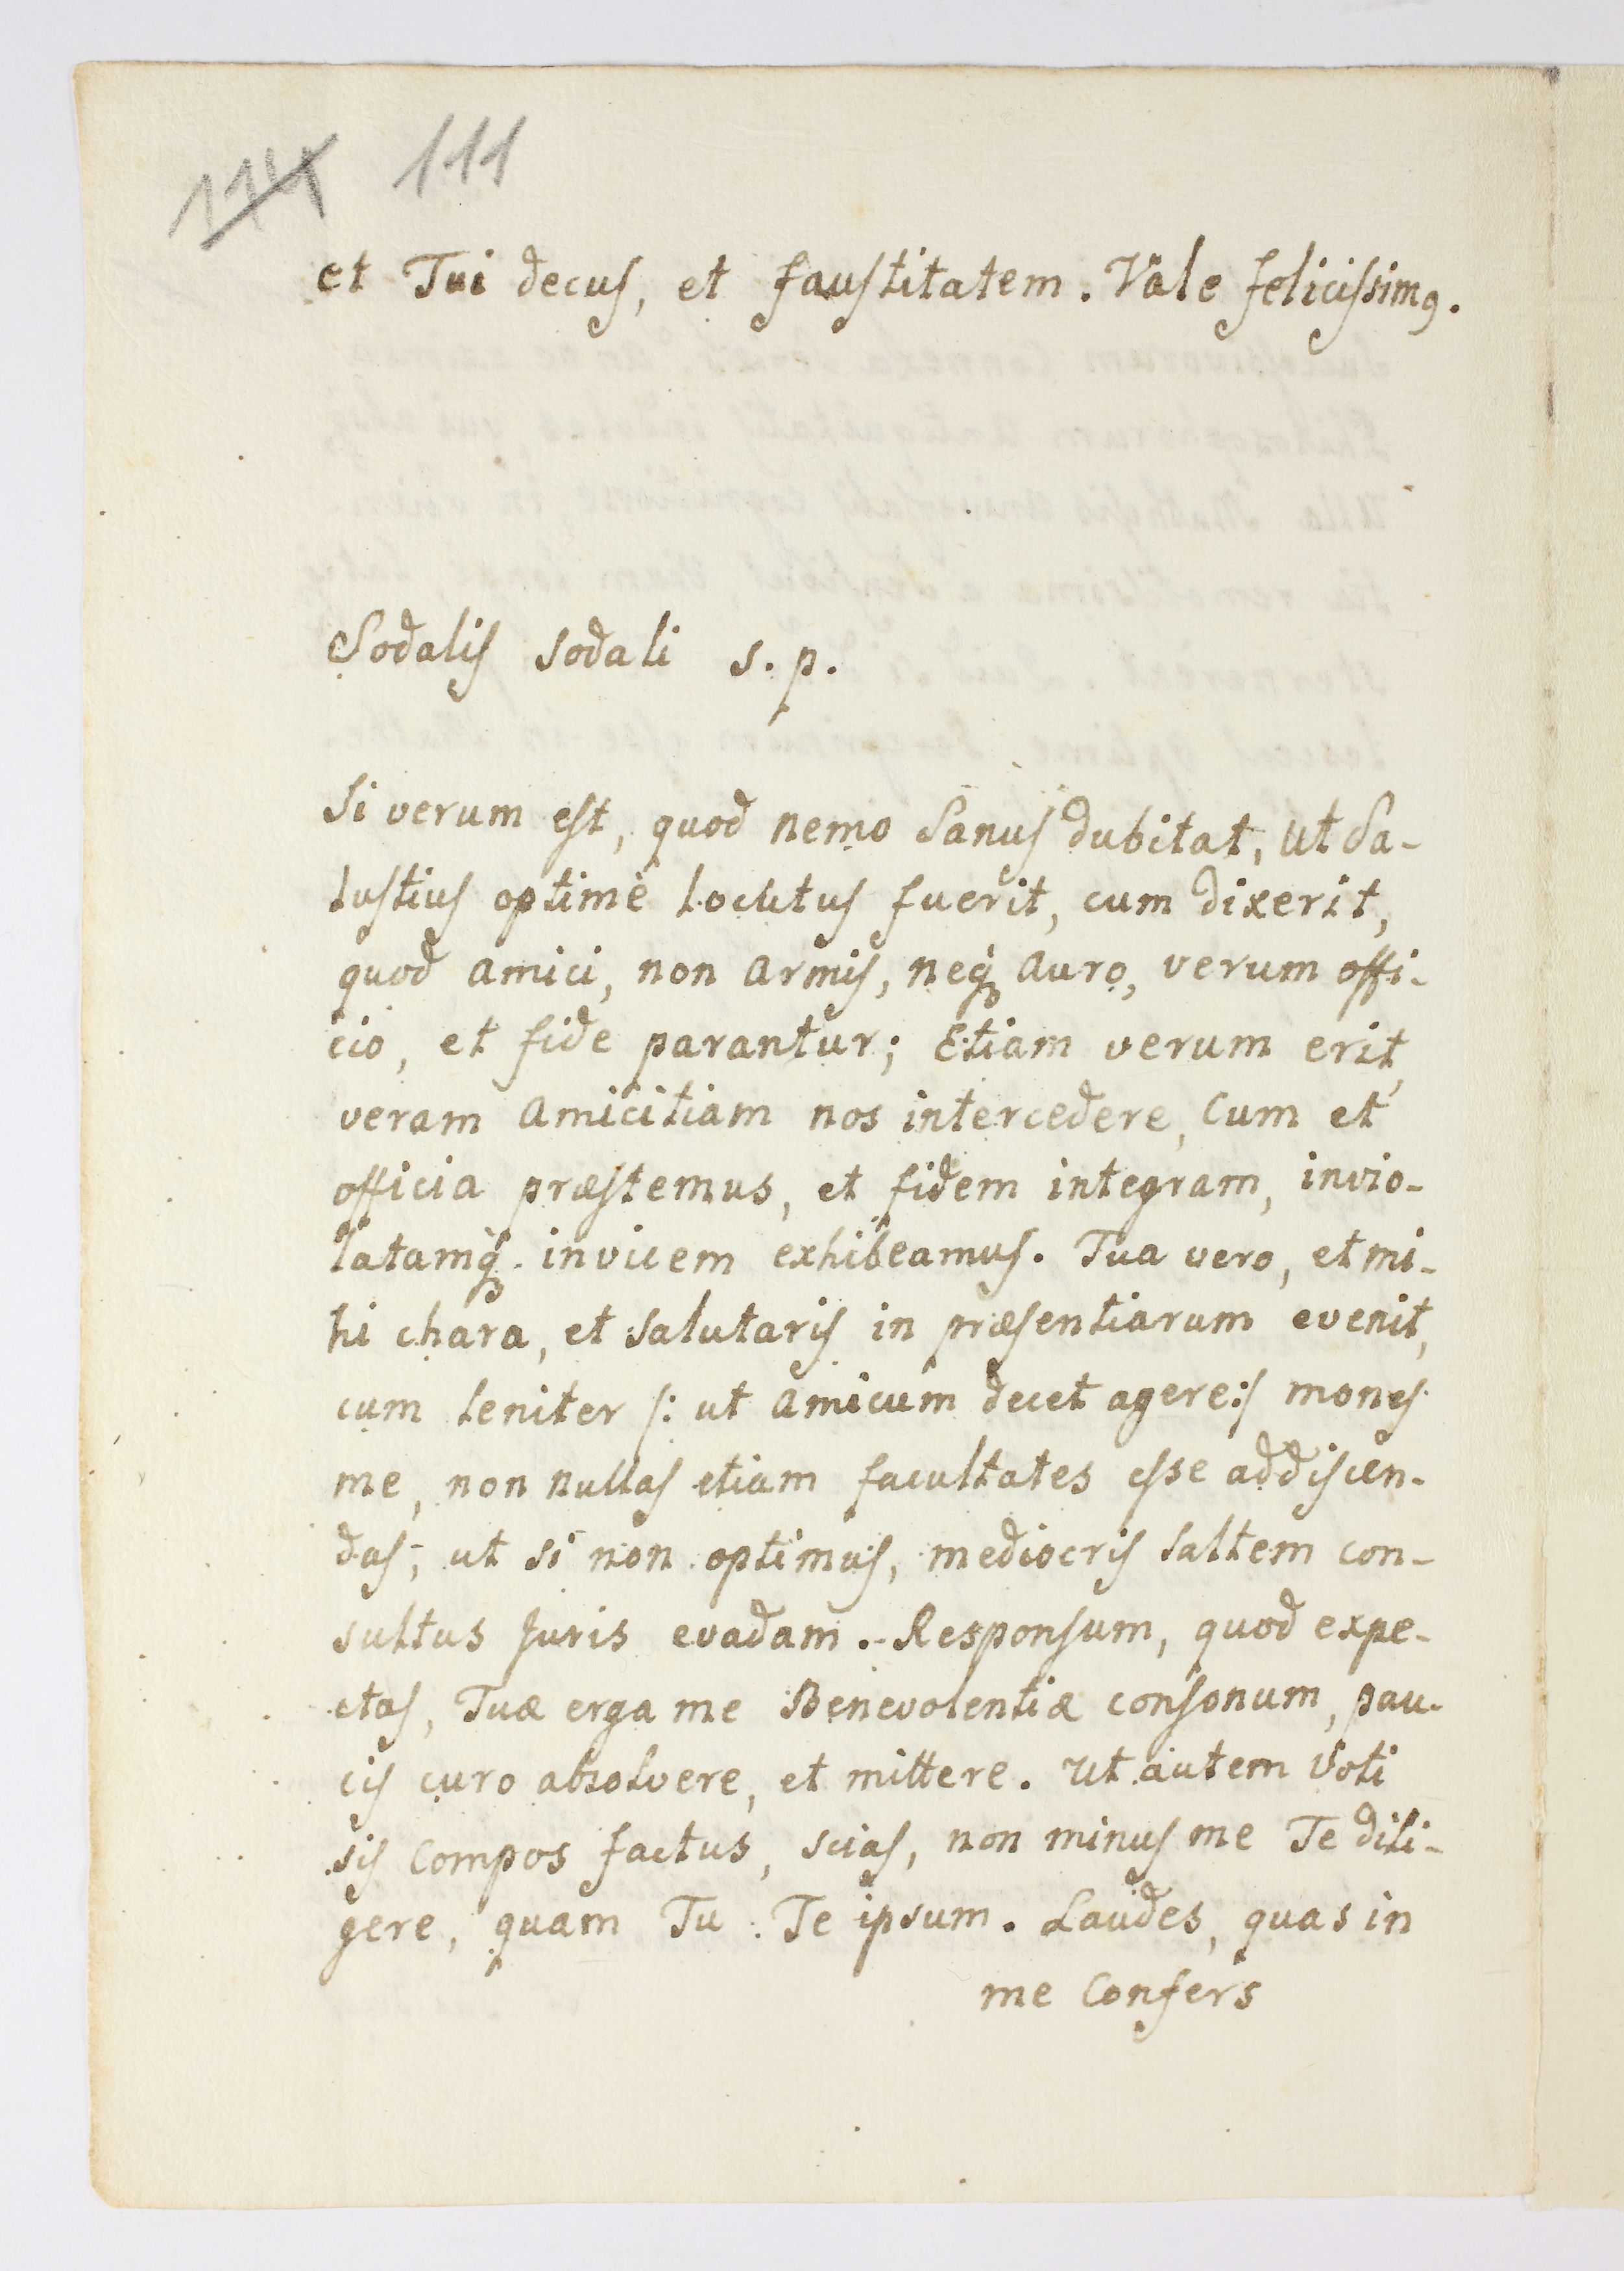 114 111
et Tui decus, et faustitatem. Vale felicissimꝰ.
Sodalis sodali s. p.
Si verum est, quod nemo Sanus dubitat, ut Sa-
lustius optimè locutus fuerit, cum dixerit,
quod amici, non armis, neq́ꝫ auro, verum offi-
cio, et fide parantur; Etiam verum erit,
veram amicitiam nos intercedere, Cum et
officia præstemus, et fidem integram, invio-
latamq́ꝫ. invicem exhibeamus. Tua vero, et mi-
hi chara, et salutaris in præsentiarum evenit,
cum leniter /: ut amicum decet agere:/ mones
me, non nullas etiam facultates esse addiscen-
das; ut si non optimus, mediocris saltem con-
sultus Juris evadam.- Responsum, quod expe-
ctas, Tuæ erga me Benevolentiæ consonum, pau-
cis curo absolvere, et mittere. Ut autem Voti
sis Compos factus, scias, non minus me Te dili-
gere, quam Tu Te ipsum. Laudes, quas in
me Confers